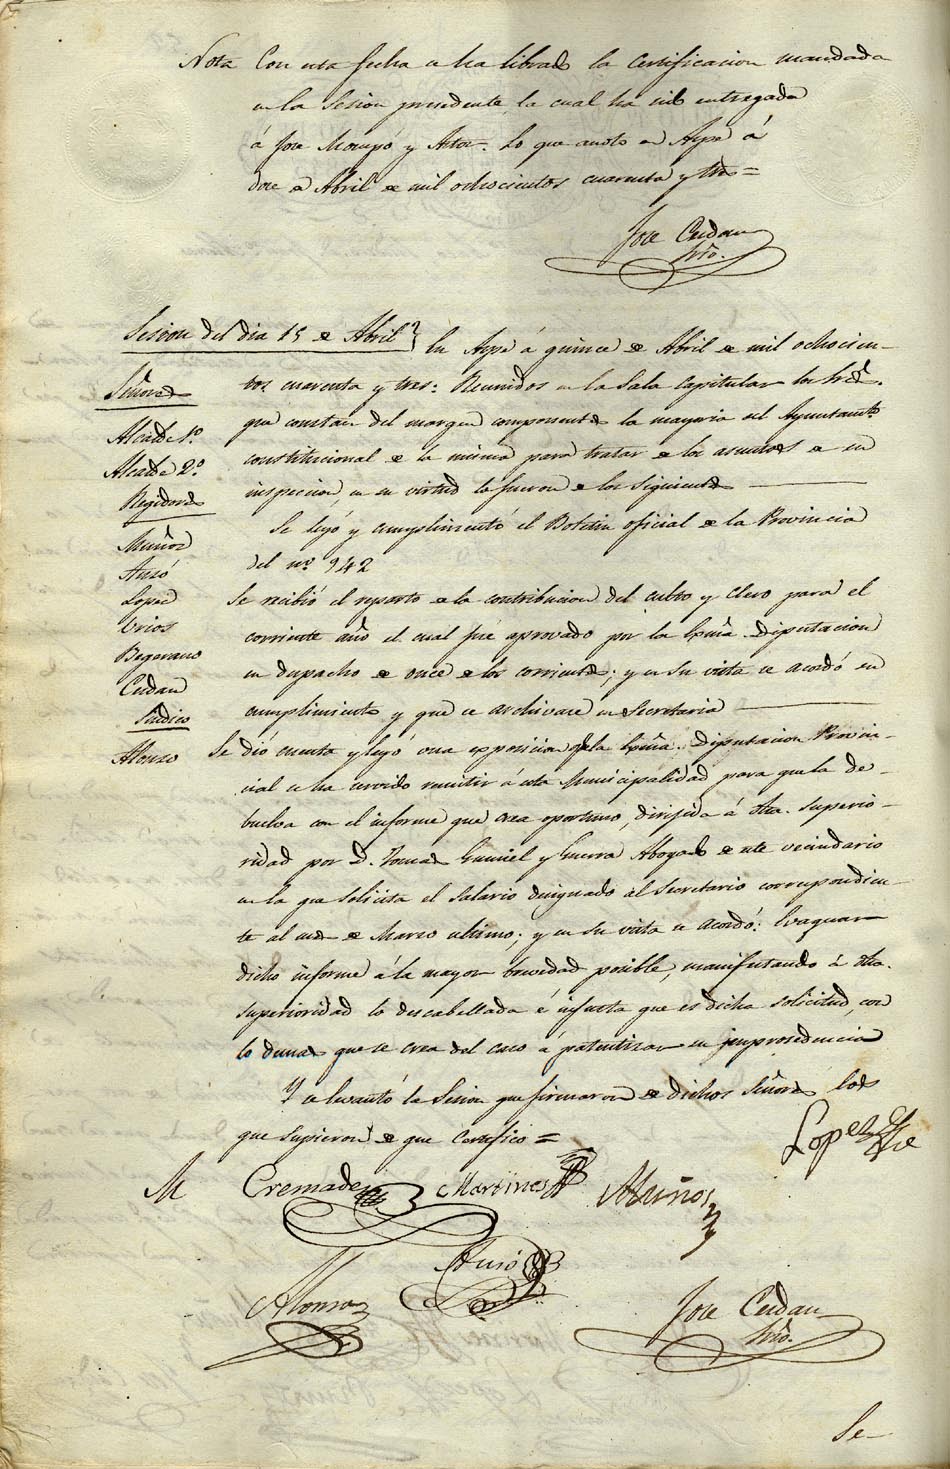 Nota Con esta fecha se ha librado la Certificacion mandada
en la Sesion precedente la cual ha sido entregada
á Jose y Ator. Lo que anoto en Aspe á
doce de Abril de mil ochocientos cuarenta y tres=
Jose Cerdan
Srio.
Sesion del dia 15 de Abril} En Aspe á quince de Abril de mil ochocien-
tos cuarenta y tres: Reunidos en la Sala Capitular los Sres.
que constan del margen componentes la mayoria del Ayuntamto
constitucional de la misma para tratar de los asuntos de su
inspeccion, en su virtud lo fueron de los siguientes
Señores
Alcalde 1.º
Alcalde 2.º
Regidores
Muñoz
Auzó
Lopez
Urios
Begerano
Cerdan
Sindico
Alonso
Se leyó y cumplimentó el Boletin oficial de la Provincia
del nº. 942
Se recibió el reparto de la contribucion del culto y clero para el
corriente año el cual fue aprovado por la Exma. Diputacion
en despacho de once de los corrientes; y en su vista se acordó su
cumplimiento y que se archivase en Secretaria
Se dió cuenta y leyó una exposicion qe la Exma. Diputacion Provin-
cial se ha servido remitir á esta Municipalidad para que la de-
buelva con el informe que crea oportuno, dirijida á dha. Superio-
ridad por D. Tomas y Guerra Abogado de este vecindario
en la que solicita el Salario designado al Secretario correspondien-
te al mes de Marzo ultimo; y en su vista se acordó: Evaquar
dicho informe á la mayor brevedad posible, manifestando á dha.
superioridad lo descabellada é injusta que es dicha solicitud, con
lo demas que se crea del caso á patentizar su improsedencia
Y se levantó la Sesion que firmaron de dichos Señores los
que supieron de que Certifico=
Lopez
M Cremades Martinez Muñoz
Auzó
Alonso
Jose Cerdan
Srio.
Se-